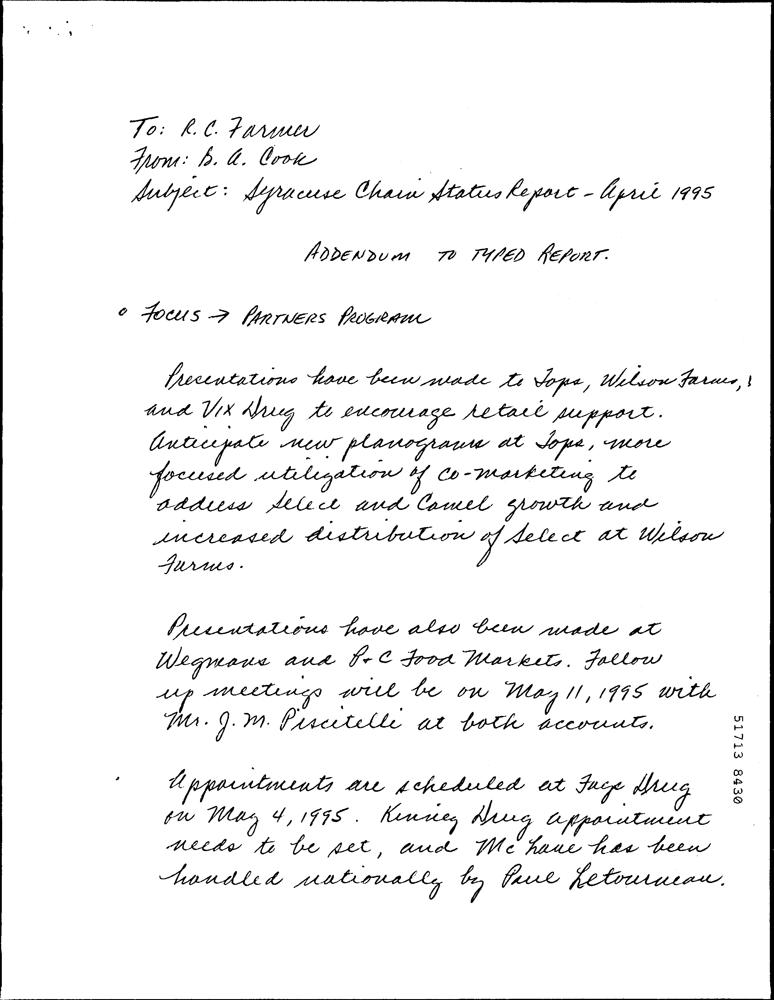 To: R.C. Farmer
From: B. A. Cook
Subject: Syracuse Chain Status Report - April 1995
ADDENDUM TO TYPED REPORT.
o FOCUS → PARTNERS PROGRAM
Presentations have been made to Tops, Wilson Farms,
and Vix Drug to encourage retail support.
Anticipate new planograms at Tops, more
focused utilization of co-marketing to
address Select and Camel growth and
increased distribution of Select at Wilson
Farms.
Presentations have also been made at
Wegmans and P+C Food Markets. Follow
up meetings will be on May 11, 1995 with
Mr. J. M. Piscitelli at both accounts.
Appointments are scheduled at Fays Drug
on May 4, 1995. Kinney Drug appointment
needs to be set, and McLane has been
handled nationally by Paul Letourneau.
51713 8430